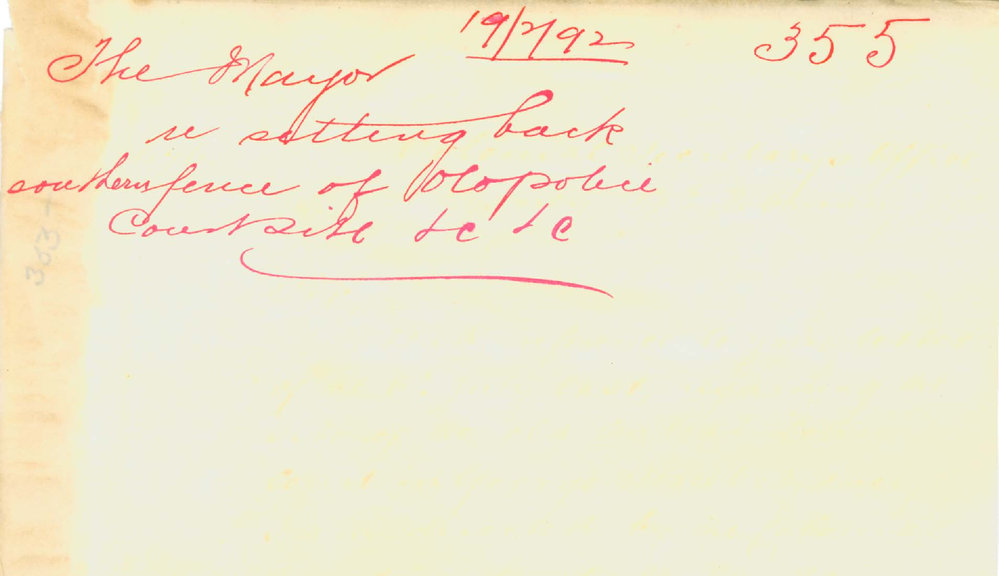 19/2/92 355
The Mayor
re setting back
southern fence of Old police
Court site &c &c